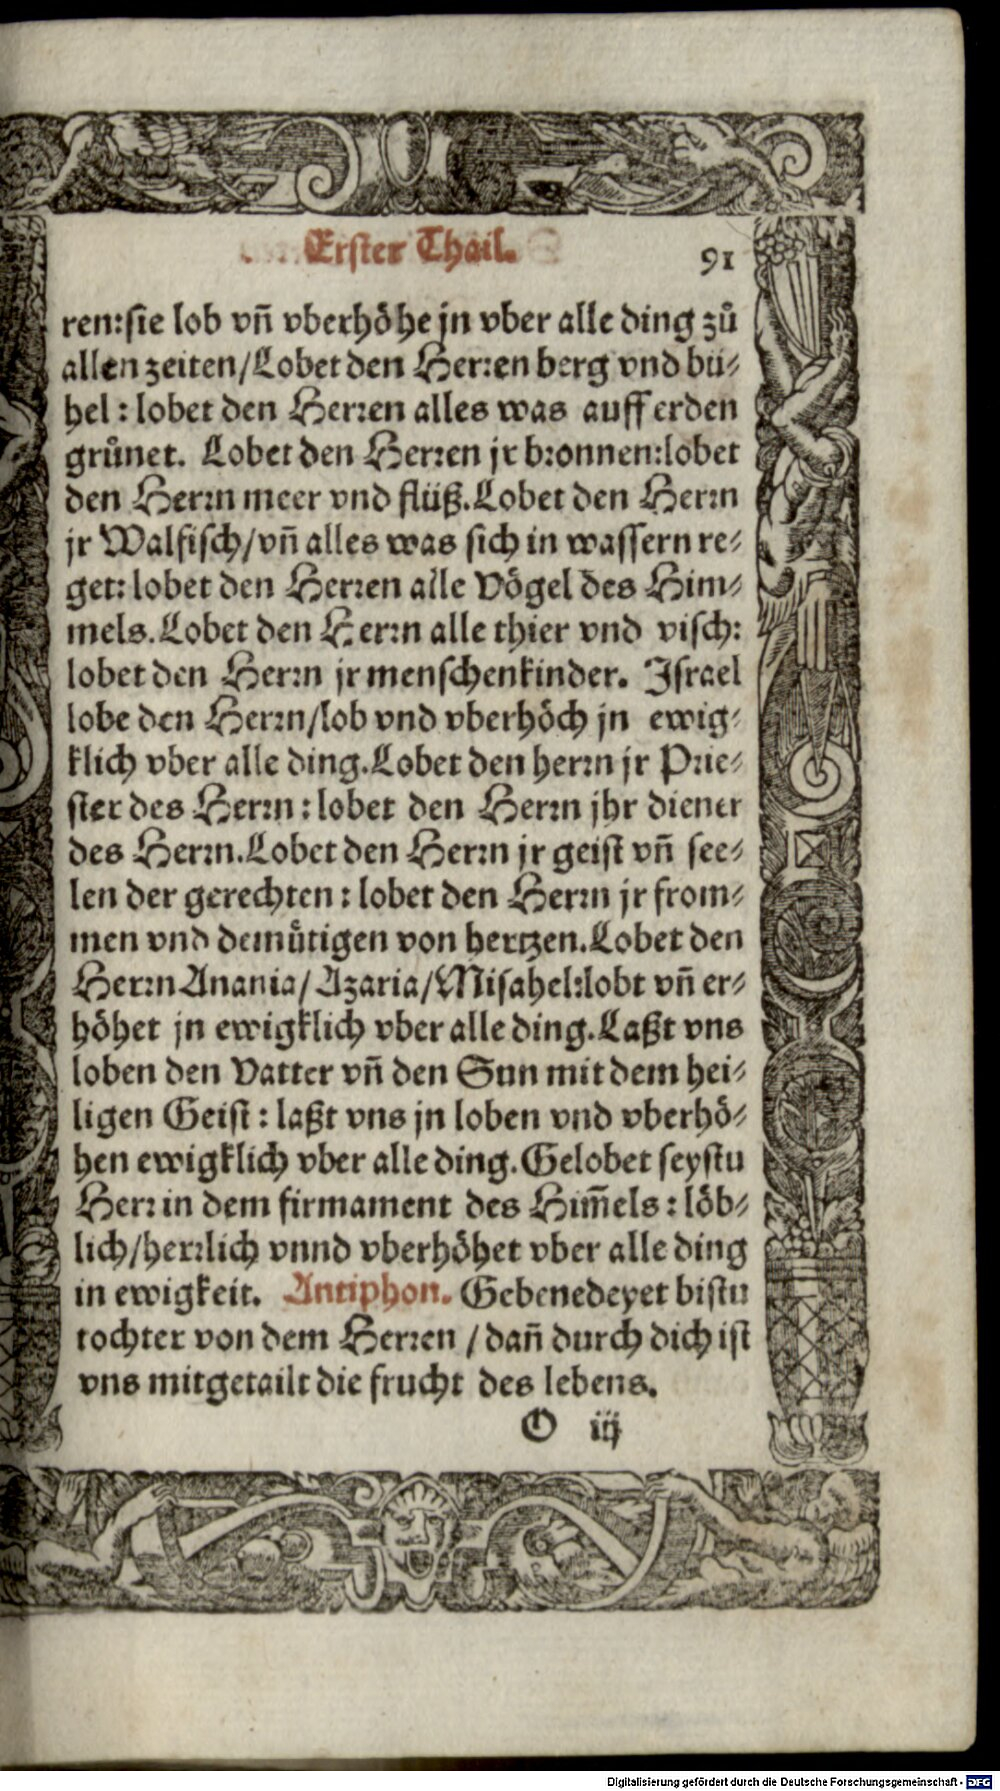 Erster Thail. 91
ren:sie lob vñ vberhöhe jn vber alle ding zů
allen zeiten/Lobet den Herren berg vnd bü-
hel : lobet den Herren alles was auff erden
grůnet. Lobet den Herren jr bronnen:lobet
den Herrn meer vnd flüß.Lobet den Herrn
jr Walfisch/vñ alles was sich in wassern re-
get: lobet den Herren alle Vögel des Him-
mels.Lobet den Herrn alle thier vnd visch:
lobet den Herrn jr menschenkinder. Israel
lobe den Herrn/lob vnd vberhöch jn ewig-
klich vber alle ding.Lobet den herrn jr Prie-
ster des Herrn : lobet den Herrn jhr diener
des Herrn.Lobet den Herrn jr geist vñ see-
len der gerechten : lobet den Herrn jr from-
men vnd demütigen von hertzen.Lobet den
Herrn Anania/Azaria/Misahel:lobt vñ er-
höhet jn ewigklich vber alle ding.Laßt vns
loben den Vatter vñ den Sun mit dem hei-
ligen Geist : laßt vns jn loben vnd vberhö-
hen ewigklich vber alle ding.Gelobet seystu
Herr in dem firmament des Him̃els : löb-
lich/herrlich vnnd vberhöhet vber alle ding
in ewigkeit. Antiphon. Gebenedeyet bistu
tochter von dem Herren / dañ durch dich ist
vns mitgetailt die frucht des lebens.
O iij
Digitalisierung gefördert durch die Deutsche Forschungsgemeinschaft - DFG